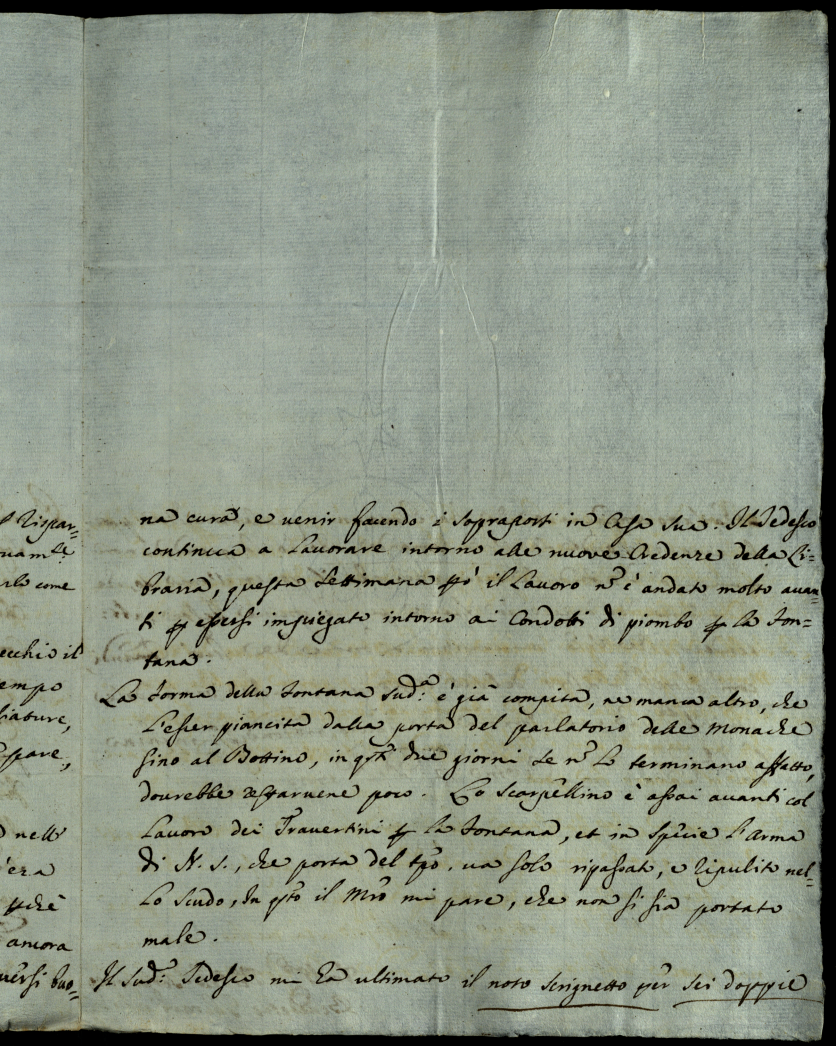 l Rispar=
uam.te
rlo come
ecchio il
empo
liature,
pare,
nell'
'era
ancora
versi buo=
na cura, e venir facendo i sopraporti in Casa sua. Il Tedesco
continua a lavorare intorno alle nuove Credenze della Li=
braria, questa Settimana però il Lavoro nõ è andato molto avan=
ti p essersi impiegato intorno ai Condotti di piombo p la Fon=
tana.
La forma della fontana sud.a è già compita, ne manca altro, che
l'esser piancita dalla porta del parlatorio delle Monache
sino al Bottino, in qsti due giorni se nõ lo terminano affatto,
dovrebbe restarvene poco. Lo scarpellino è assai avanti col
Lavoro dei Travertini p la fontana, et in spêcie l'Arma
di N. S., che porta del tpo. va solo ripassat, e ripulita nel=
lo scudo, In qto il Mro mi pare, che non si sia portato
male.
Il sud.o Tedesco mi ha ultimato il noto scrignetto per sei doppie